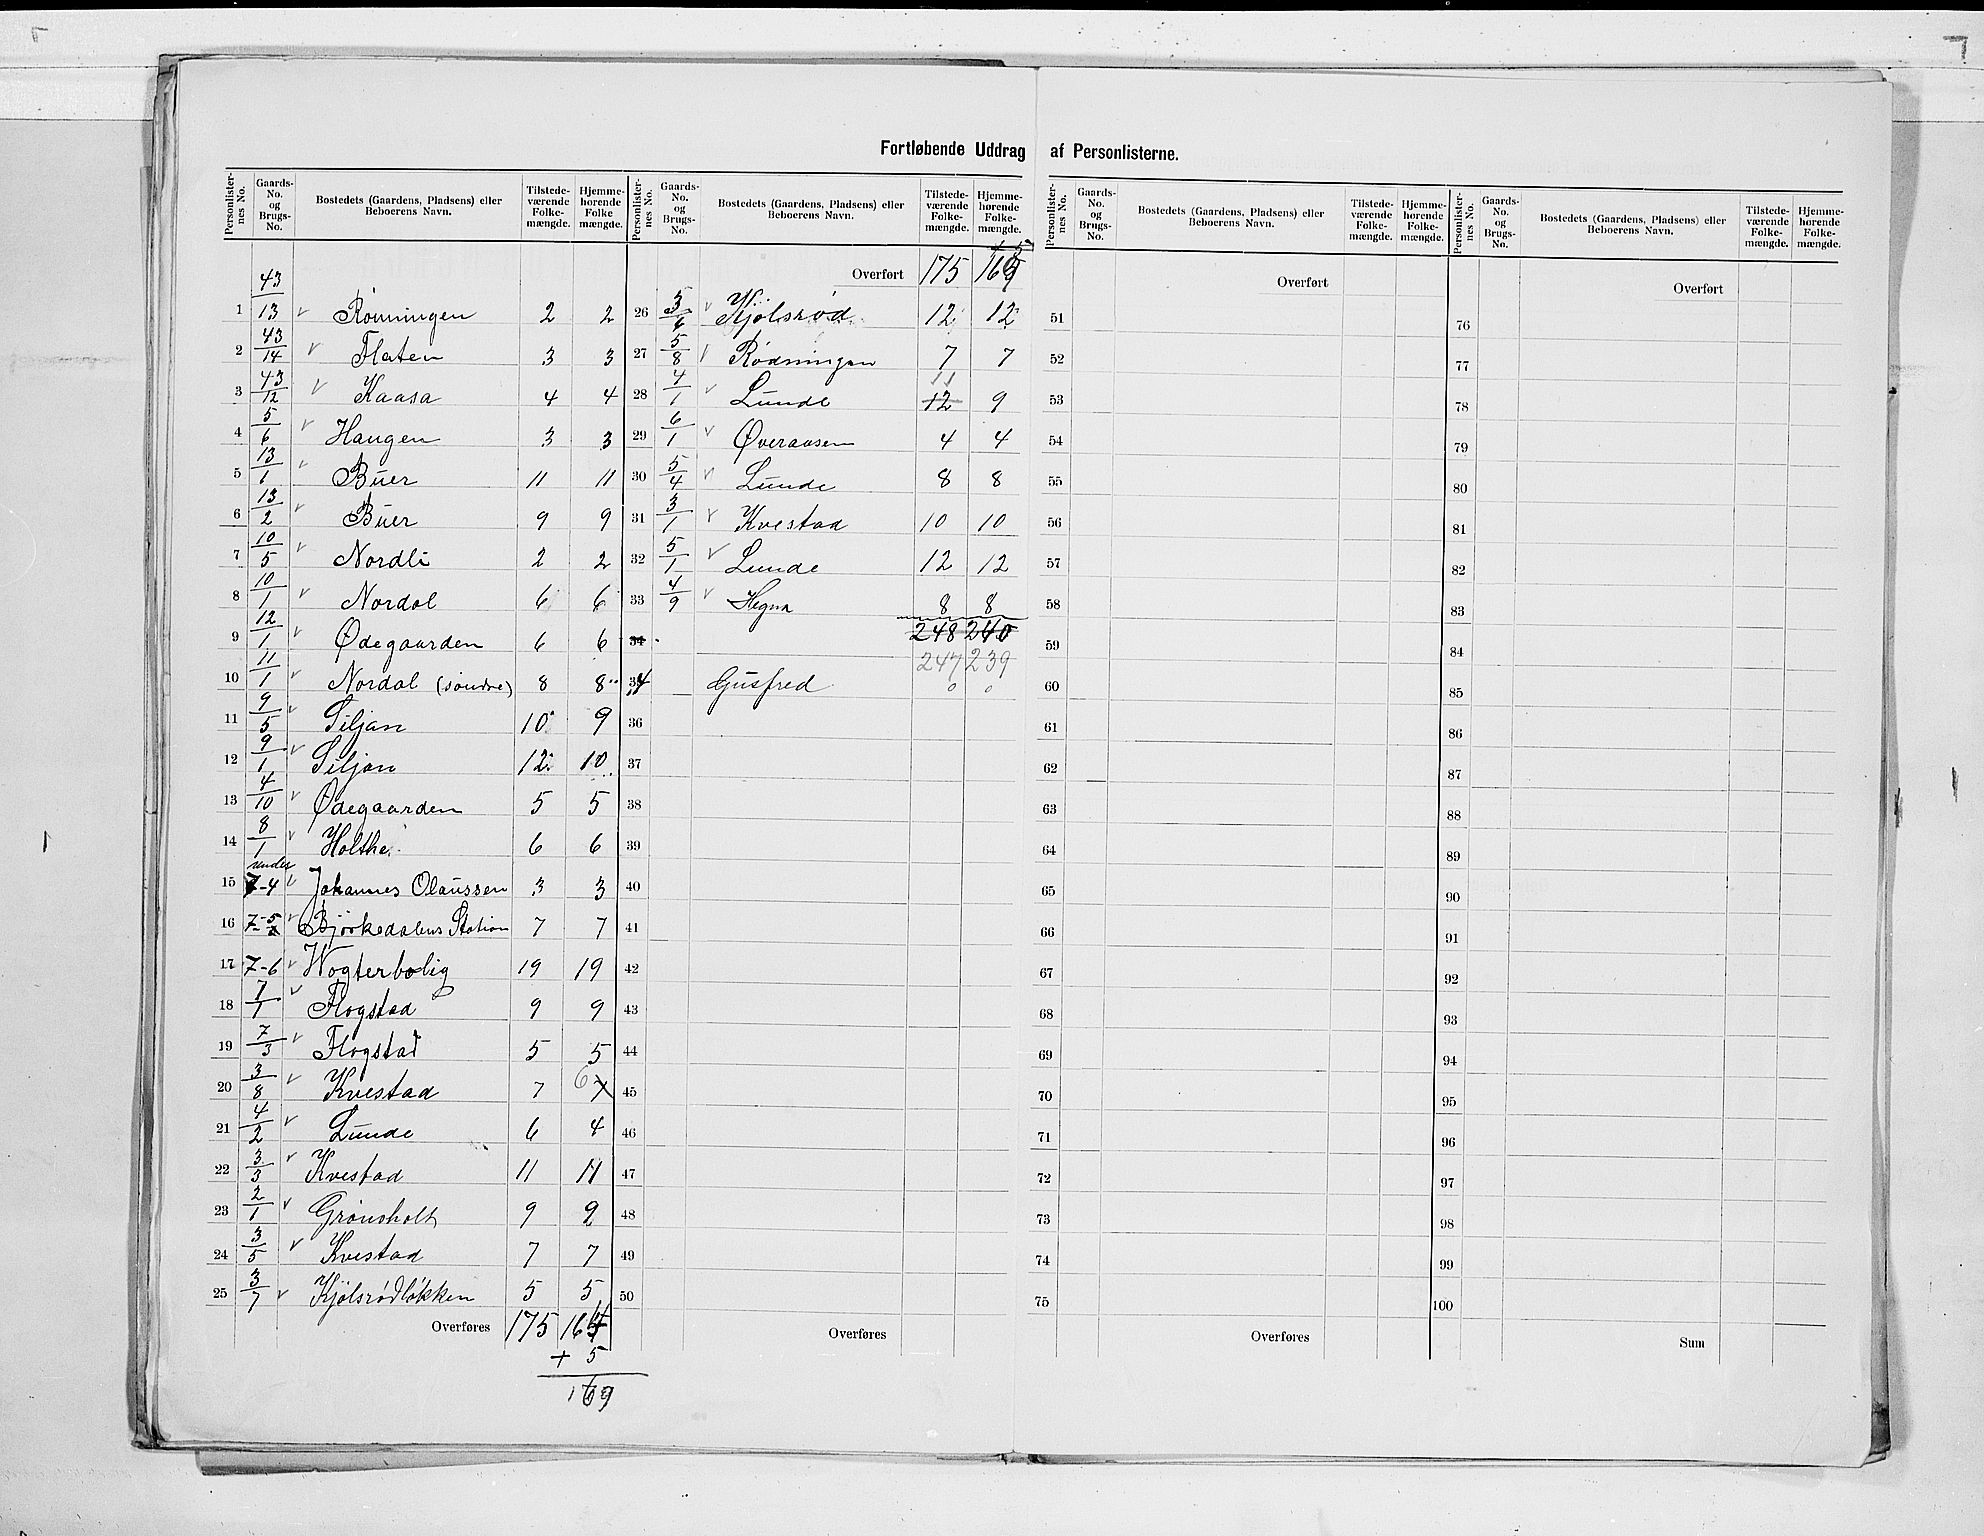 Fortløbende Uddrag af Personlisterne.
Personlisternes No. Gaards-No. og Brugs-No. Bostedets (Gaardens, Pladsens) eller Beboerens Navn. Tilstedeværende Folkemængde. Hjemmehørende Folkemængde.
1 43/13 Rönningen 2 2
2 43/14 Flaten 3 3
3 43/12 Kaasa 4 4
4 5/6 Haugen 3 3
5 13/1 Buer 11 11
6 13/2 Buer 9 9
7 10/5 Nordli 2 2
8 10/1 Nordal 6 6
9 12/1 Ødegaarden 6 6
10 11/1 Nordal (söndre) 8 8
11 9/5 Siljan 10 9
12 9/1 Siljan 12 10
13 4/10 Ødegaarden 5 5
14 8/1 Holthe 6 6
15 7-4 Johannes Olaussen 3 3
16 7-5 Björkedalens Station 7 7
17 7-6 Vogterbolig 19 19
18 7/1 Flogstad 9 9
19 7/3 Flogstad 5 5
20 3/8 Kvestad 7 6 7
21 4/2 Lunde 6 4
22 3/3 Kvestad 11 11
23 2/1 Grönsholt 9 9
24 3/5 Kvestad 7 7
25 3/7 Kjölsrødløkken 5 5
Overføres 175 164
+ 5
169
Personlisternes No. Gaards-No. og Brugs-No. Bostedets (Gaardens, Pladsens) eller Beboerens Navn. Tilstedeværende Folkemængde. Hjemmehørende Folkemængde.
Overført 175 169
26 3/6 Kjölsrød 12 12
27 5/8 Rødningen 7 7
11
28 4/1 Lunde 12 9
29 6/1 Øveraasen 4 4
30 5/4 Lunde 8 8
31 3/1 Kvestad 10 10
32 5/1 Lunde 12 12
33 4/9 Hegna 8 8
34 248 240
247 239
34 Gusfred 0 0
36
37
38
39
40
41
42
43
44
45
46
47
48
49
50
Overføres
Personlisternes No. Gaards-No. og Brugs-No. Bostedets (Gaardens, Pladsens) eller Beboerens Navn. Tilstedeværende Folkemængde. Hjemmehørende Folkemængde.
Overført
51
52
53
54
55
56
57
58
59
60
61
62
63
64
65
66
67
68
69
70
71
72
73
74
75
Overføres
Personlisternes No. Gaards-No. og Brugs-No. Bostedets (Gaardens, Pladsens) eller Beboerens Navn. Tilstedeværende Folkemængde. Hjemmehørende Folkemængde.
Overført
76
77
78
79
80
81
82
83
84
85
86
87
88
89
90
91
92
93
94
95
96
97
98
99
100
Sum